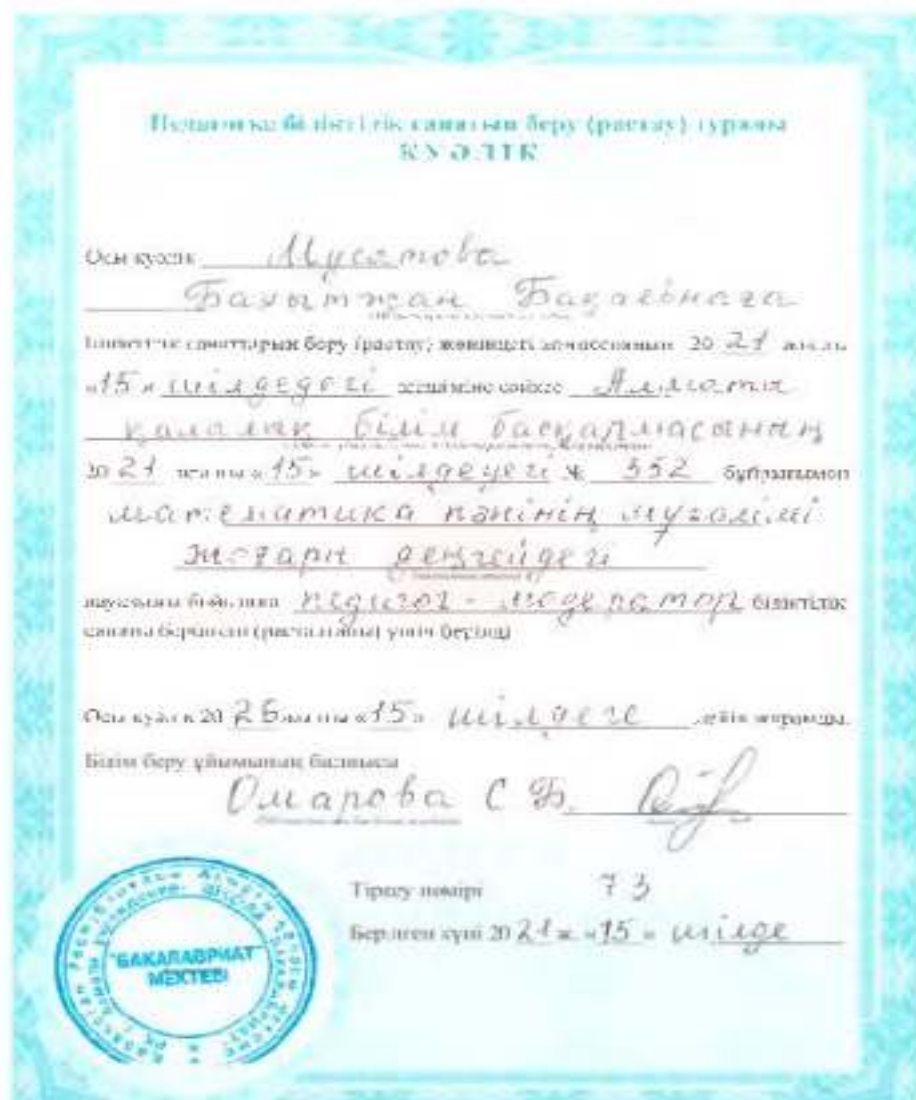 Педагогке біліктілік санатын беру (растау) туралы
КУӘЛІК
Осы куәлік Мусатова
Бахытжан Бақаевнаға
біліктілік санаттарын беру (растау) жөніндегі комиссияның 20 21 жылғы
«15» шілдедегі шешіміне сәйкес Алматы
қалалық білім басқармасының
20 21 жылғы «15» шілдедегі № 552 бұйрығымен
математика пәнінің мұғалімі
жоғары деңгейдегі
лауазымы бойынша педагог - модератор біліктілік
санаты берілгені (расталғаны) үшін берілді
Осы куәлік 20 26 жылғы «15» шілдеге дейін жарамды.
Білім беру ұйымының басшысы
Омарова С Б.
Тіркеу нөмірі 73
Берілген күні 20 21 ж «15» шілде
"БАКАЛАВРИАТ"
МЕКТЕБІ